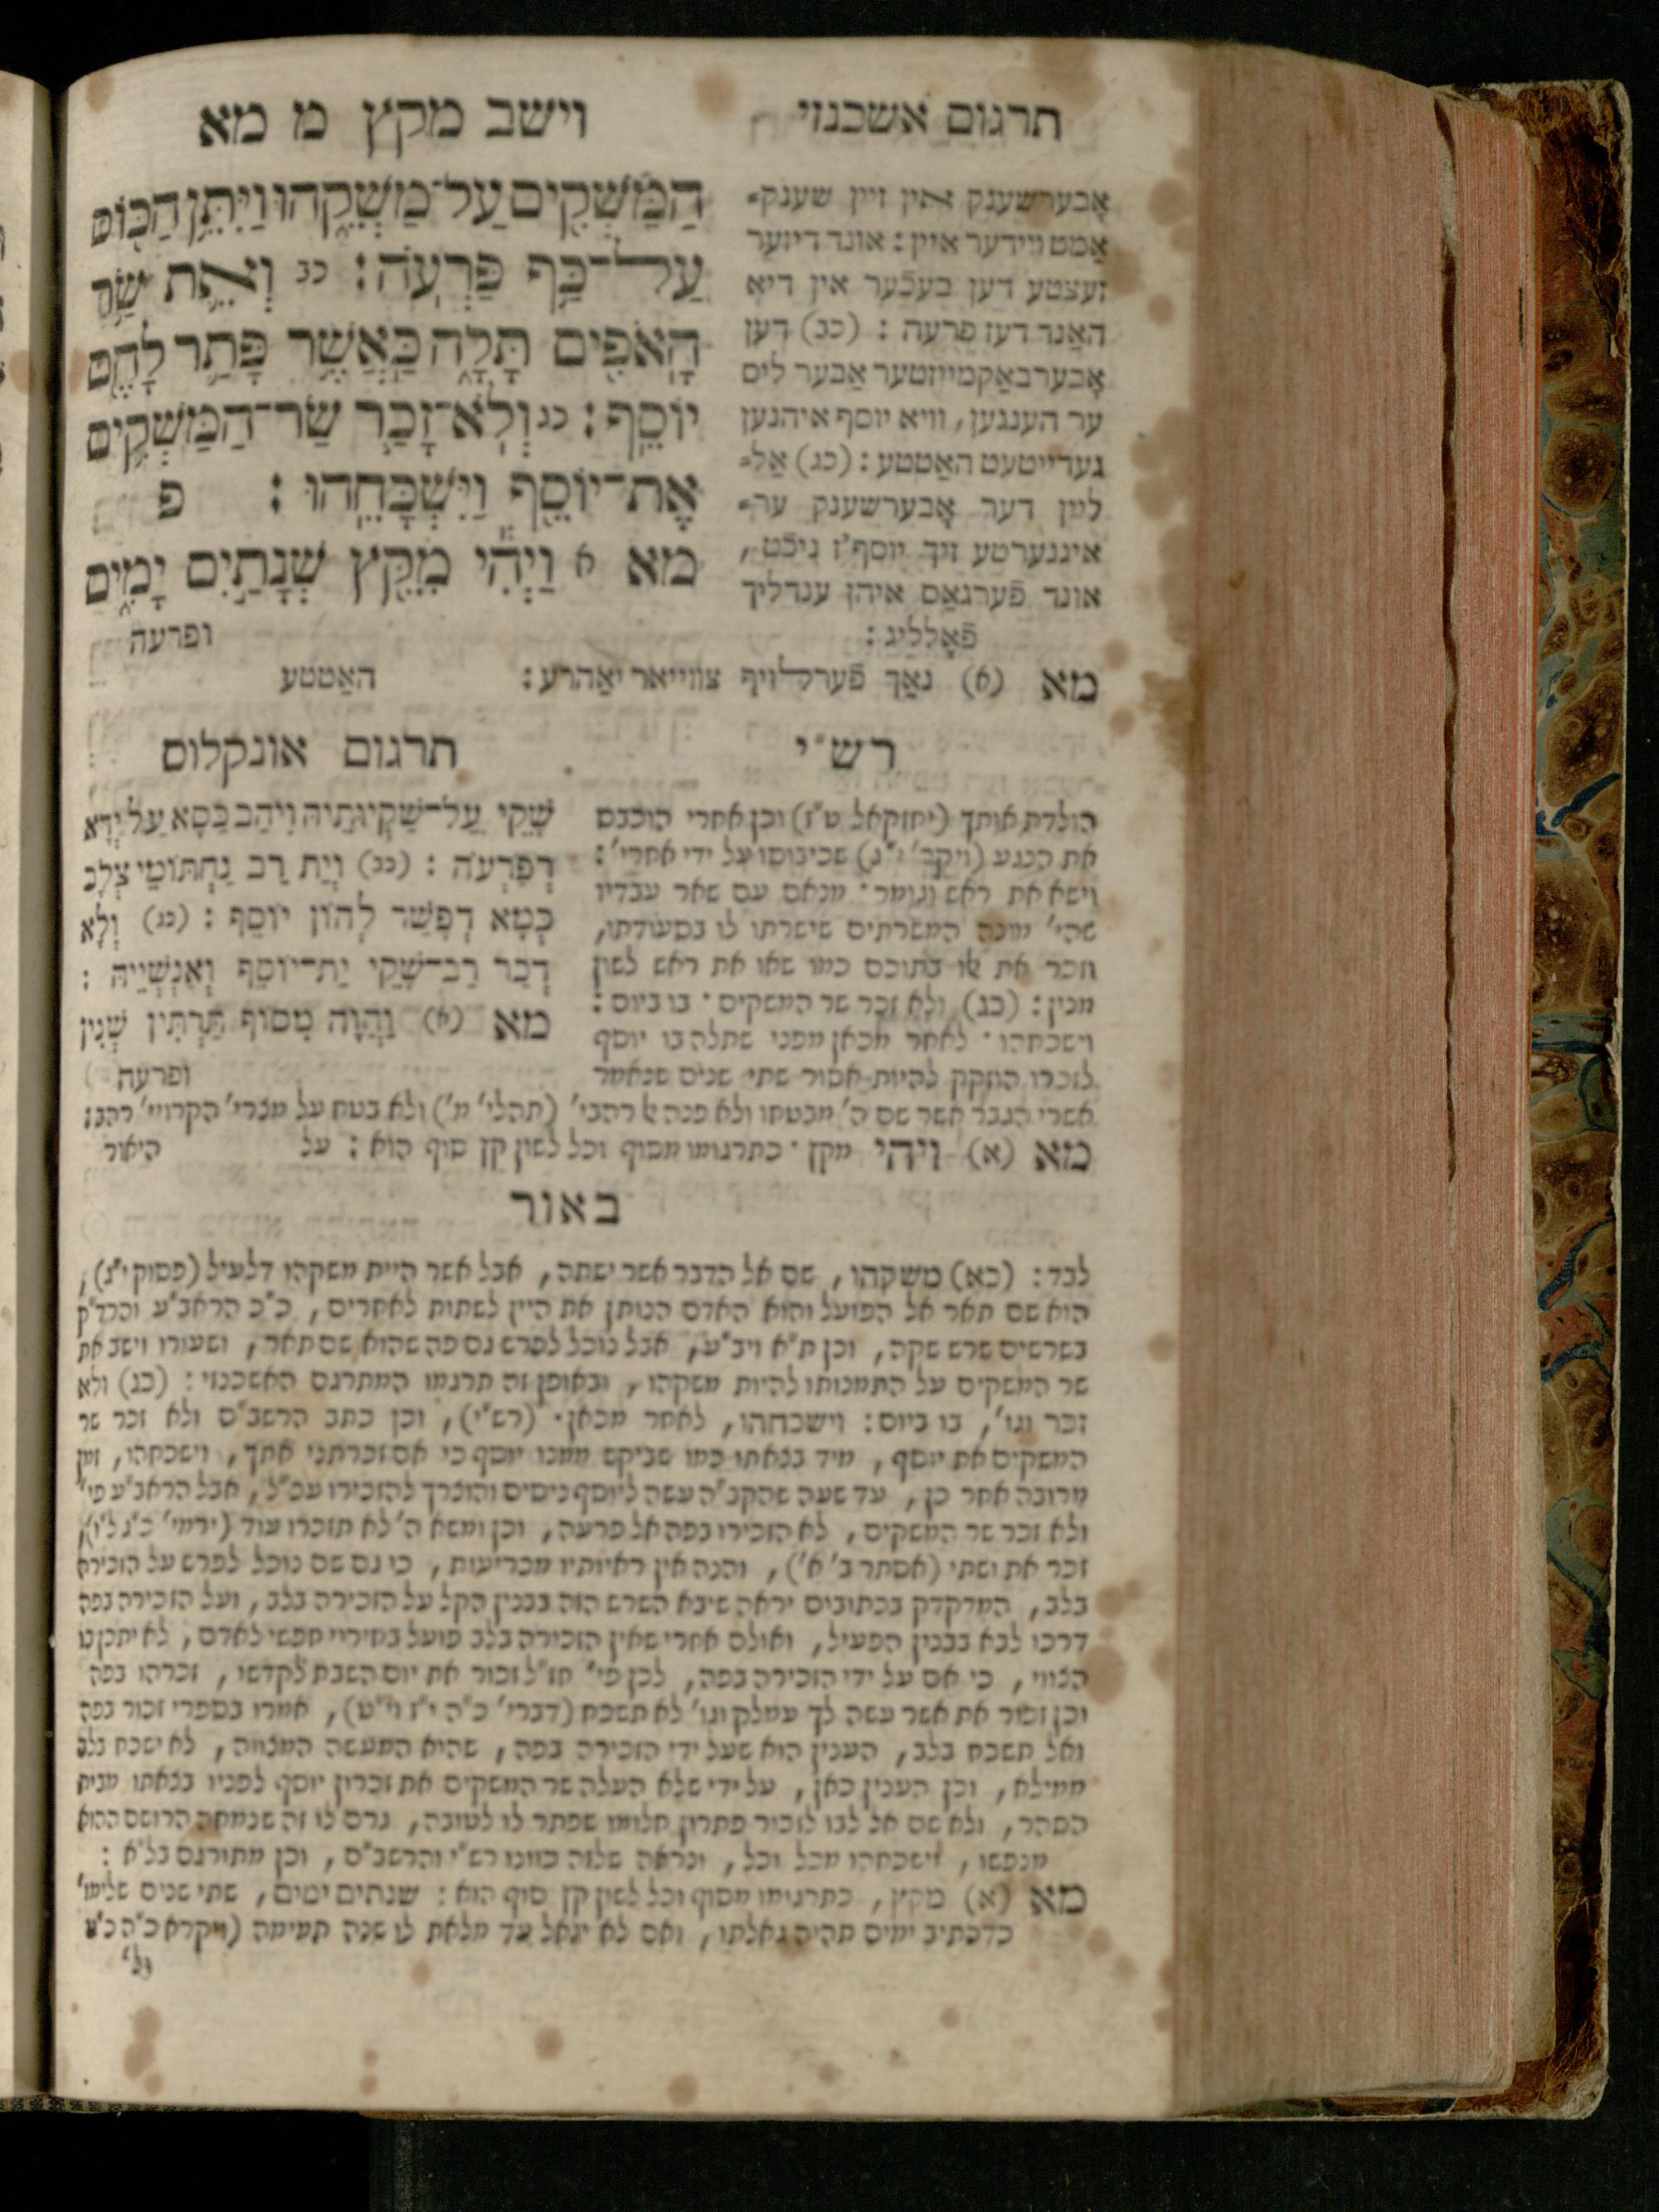 תרגום אשכנזי
וישב מקץ מ מא
הַמַּשְׁקִ֖ים עַל־מַשְׁקֵ֑הוּ וַיִּתֵּ֥ן הַכּ֖וֹס
עַל־כַּ֥ף פַּרְעֹֽה׃ כב וְאֵ֛ת שַׂ֥ר
הָאֹפִ֖ים תָּלָ֑ה כַּאֲשֶׁ֥ר פָּתַ֛ר לָהֶ֖ם
יוֹסֵֽף׃ כג וְלֹֽא־זָכַ֧ר שַׂר־הַמַּשְׁקִ֛ים
אֶת־יוֹסֵ֖ף וַיִּשְׁכָּחֵֽהוּ׃ פ
מא א וַיְהִ֕י מִקֵּ֖ץ שְׁנָתַ֣יִם יָמִ֑ים
ופרעה
אָבערשענק אין זיין שענק=
אַמט ווידער איין: אונד דיזער
זעצטע דען בעכֿער אין דיא
האַנד דעז פרעה: (כב) דען
אָבערבאַקמייזטער אַבער ליס
ער הענגען, וויא יוסף איהנען
געדייטעט האַטטע: (כג) אַל=
ליין דער אָבערשענק ער=
איננערטע זיך יוסף'ז ניכֿט,
אונד פֿערגאַס איהן ענדליך
פֿאָלליג:
מא (א) נאַך פֿערלויף צווייאר יאַהרע: האַטטע
רש"י
הולדת אותך (יחזקאל ט"ז) וכן אחרי הוכבס
את הנגע (ויקר' י"ג) שכיבוסו על ידי אחרי':
וישא את ראש וגומר· מנאם עם שאר עבדיו
שהי' מונה המשרתים שישרתו לו בסעודתו,
וזכר את אלו בתוכם כמו שאו את ראש לשון
מנין: (כג) ולא זכר שר המשקים· בו ביום:
וישכחהו· לאחר מכאן מפני שתלה בו יוסף
לזכרו הוזקק להיות אסור שתי שנים שנאמר
אשרי הגבר אשר שם ה' מבטחו ולא פנה אל רהבי' (תהלי' מ') ולא בטח על מצרי' הקרויי' רהב:
מא (א) ויהי מקץ· כתרגומו מסוף וכל לשון קץ סוף הוא: על היאור
תרגום אונקלוס
שָׁקֵי עַל־שַׁקְיוּתֵיהּ וִיהַב כַּסָא עַל יְדָא
דְפַרְעֹה: (כב) וְיָת רַב נַחְתּוֹמֵי צְלַב
כְּמָא דְפַשַׁר לְהוֹן יוֹסֵף: (כג) וְלָא
דְכַר רַב־שָׁקֵי יָת־יוֹסֵף וְאַנְשְׁיֵיהּ:
מא (א) וַהֲוָה מִסּוֹף תַּרְתֵּין שְׁנִין
ופרעה
באור
לבד: (כא) משקהו, שם אל הדבר אשר ישתה, אבל אשר היית משקהו דלעיל (פסוק י"ג),
הוא שם תאר אל הפועל והוא האדם הנותן את היין לשתות לאחרים, כ"כ הראב"ע והרד"ק
בשרשים שרש שקה, וכן ת"א ויב"ע, אבל נוכל לפרש גם פה שהוא שם תאר, ושעורו וישב את
שר המשקים על התמנותו להיות משקהו, ובאופן זה תרגמו המתרגם האשכנזי: (כג) ולא
זכר וגו', בו ביום: וישכחהו, לאחר מכאן· (רש"י), וכן כתב הרשב"ם ולא זכר שר
המשקים את יוסף, מיד בצאתו כמו שביקש ממנו יוסף כי אם זכרתני אתך, וישכחהו, זמן
מרובה אחר כן, עד שעה שהקב"ה עשה ליוסף ניסים והוצרך להזכירו עכ"ל, אבל הראב"ע פי'
ולא זכר שר המשקים, לא הזכירו בפה אל פרעה, וכן ומשא ה' לא תזכרו עוד (ירמי' כ"ג ל"ו),
זכר את ושתי (אסתר ב' א'), והנה אין ראיותיו מכריעות, כי גם שם נוכל לפרש על הזכירה
בלב, המדקדק בכתובים יראה שיבא השרש הזה בבנין הקל על הזכירה בלב, ועל הזכירה בפה
דרכו לבא בבנין הפעיל, ואולם אחרי שאין הזכירה בלב פועל בחיריי חפשי לאדם, לא יתכן בו
הצווי, כי אם על ידי הזכירה בפה, לכן פי' חז"ל זכור את יום השבת לקדשו, זכרהו בפה
וכן זכור את אשר עשה לך עמלק וגו' לא תשכח (דברי' כ"ה י"ז וי"ט), אמרו בספרי זכור בפה
ואל תשכח בלב, הענין הוא שעל ידי הזכירה בפה, שהיא המעשה המצווה, לא ישכח בלב
ממילא, וכן הענין כאן, על ידי שלא העלה שר המשקים את זכרון יוסף לפניו בצאתו מבית
הסהר, ולא שם אל לבו לזכור פתרון חלומו שפתר לו לטובה, גרם לו זה שנמחה הרושם ההוא
מנפשו, וישכחהו מכל וכל, וכראה שלזה כוונו רש"י והרשב"ם, וכן מתורגם בל"א:
מא (א) מקץ, כתרגומו מסוף וכל לשון קץ סוף הוא: שנתים ימים, שתי שנים שלימו'
כדכתיב ימים תהיה גאלתו, ואם לא יגאל עד מלאת לו שנה תמימה (ויקרא כ"ה כ"ט